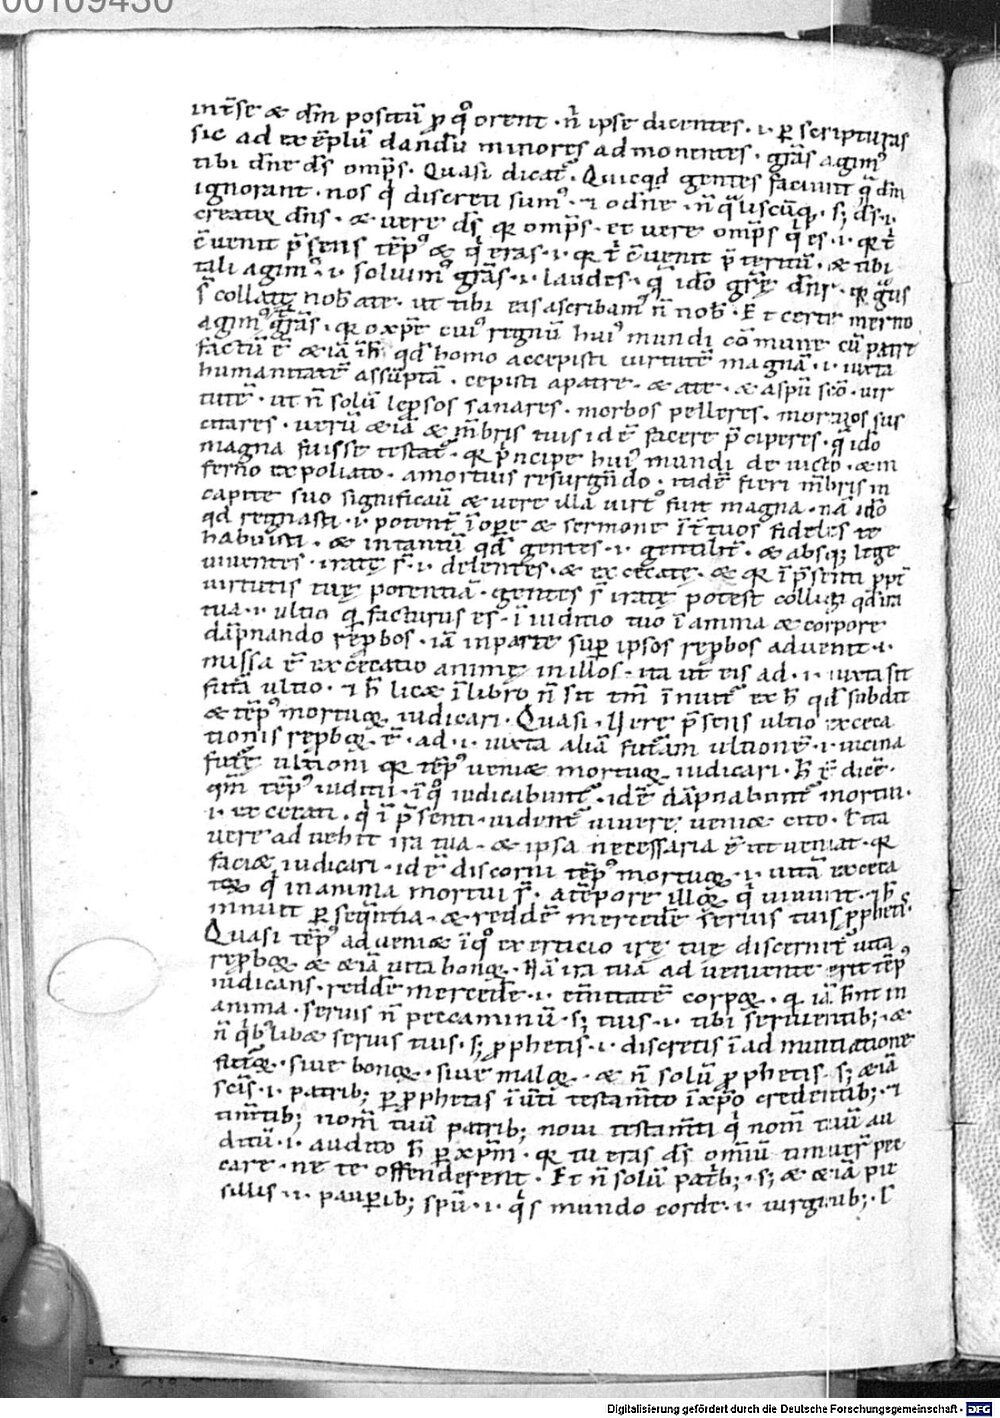 00109430
int̄se & dm̄ positū ꝓ qͦ orent · n̄ ipse dicentes · i · ꝑ scripturas
sic ad exēplū dandū minores admonentes · gr̄as agimꝰ
tibi dn̄e ds̄ omp̄s · Quasi dicat̄ · Quicqd̄ gentes faciunt q̄ dm̄
ignorant · nos qͥ discreti sumꝰ · o dn̄e · n̄ qͣliscūqꝫ · sꝫ ds̄ · i ·
creatix dn̄s · & vere ds̄ qꝛ omp̄s · et vere omp̄s qͥ es · i · qꝛ t̄
c̄uenit p̄sens tēpꝰ & qͥ eras · i · qꝛ t̄ c̄uenit p̄teritū · & tibi
tali agimꝰ · i · soluimꝰ gr̄as · i · laudes · qͣ ido grē dn̄r · qꝛ
s̄ collatę nob̄ a te · ut tibi eas ascribamꝰ n̄ nob̄ · Et certe merito
agimꝰ gr̄as · qꝛ o xp̄e cuiꝰ regnū huiꝰ mundi cōmune cū patre
factū ē · & iā īh̄ qd̄ homo accepisti virtutē magnā · i · iuxta
humanitatē assūptā · cepisti a patre · & a te · & a spū sc̄o · uir
tutē · ut n̄ solū lep̄sos sanares · morbos pelleres · mortuos sus
citares · verū & iā & m̄bris tuis idē facere p̄ciperes · qͣ ido
magna fuisse testat̄ · qꝛ p̄ncipe huiꝰ mundi deuicto · & in
ferno expoliato · a mortuis resurgn̄do · inde fieri m̄bris in
capite suo significauit̄ & vere illa virtꝰ fuit magna · nā ido
qd̄ regnasti · i · potent̄ ī oꝑe & sermone īt̄ tuos fideles te
habuisti · & in tantū qd̄ gentes · i · gentilit̄ · & absqꝫ lege
uiuentes · iratę s̄ · i · delentes · & excecatę · & qꝛ ī p̄senti
virtutis tuę potentiā · gentes s̄ iratę potest colligi qd̄ ira
tua · i · ultio qͣ facturus es · ī iuditio tuo ī anima & corpore
dāpnando rep̄bos · iā in parte suꝑ ipsos rep̄bos aduenit · i ·
missa ē excecatio animę in illos · ita ut eis ad · i · iuxta sit
futā ultio · h̄ lic& ī libro n̄ sit tm̄ īnuit̄ ex h̄ qd̄ subdit
& tēpꝰ mortuoꝝ iudicari · Quasi · Vere p̄sens ultio exceca
tionis rep̄boꝝ ē · ad · i · iuxta aliā futā̄m ultionē · i · uicina
futę ultioni qꝛ tēpꝰ ueni& mortuoꝝ iudicari · h̄ ē dicē ·
qm̄ tēpꝰ iuditii · ī qͦ iudicabunt̄ · idē dāpnabunt̄ mortui ·
i · excecati · qͥ ī p̄senti uident̄ uiuere ueni& cito · Et ita
vere adueniet ira tua · & ipsa necessaria ē ut ueniat · qꝛ
faci& iudicari · idē discerni tēpꝰ mortuoꝝ · i · uitā exceca
toꝝ qͥ in anima mortui s̄ · a tēpore illoꝝ qͥ uiuunt · h̄
innuit ꝑ seqn̄tia · & reddē mercedē seruis tuis ꝓphetis ·
Quasi tēpꝰ adueni& ī qͦ exerticio irę tuę discernit̄ uita
rep̄boꝝ & & iā uita bonoꝝ · Nā ira tua adueniente erit tēpꝰ
iudicans · reddē mercedē · i · et̄nitatē corpoꝝ · qͣ iā hn̄t in
anima · seruis n̄ peccaminū · sꝫ tuis · i · tibi seruientibꝫ · &
n̄ qͥbꝰlib& seruis tuis · sꝫ ꝓphetis · i · discretis ī adnuntiatione
futoꝝ · siue bonoꝝ · siue maloꝝ · & n̄ solū ꝓphetis · sꝫ & iā
sc̄is · i · patribꝫ ꝑ ꝓphetas ī ueti testam̄to ī xp̄o credentibꝫ ·
tim̄tibꝫ nom̄ tuū patribꝫ noui testam̄ti qͥ nom̄ tuū au
ditū · i · audito h̄ ꝑ xp̄m · qꝛ tu eras ds̄ om̄iū timuerī pec
care · ne te offenderent · Et n̄ solū patribꝫ · sꝫ & & iā pu
sillis · i · pauꝑibꝫ spū · i · qͥ s̄ mundo corde · i · uirginibꝫ ·
Digitalisierung gefördert durch die Deutsche Forschungsgemeinschaft · DFG